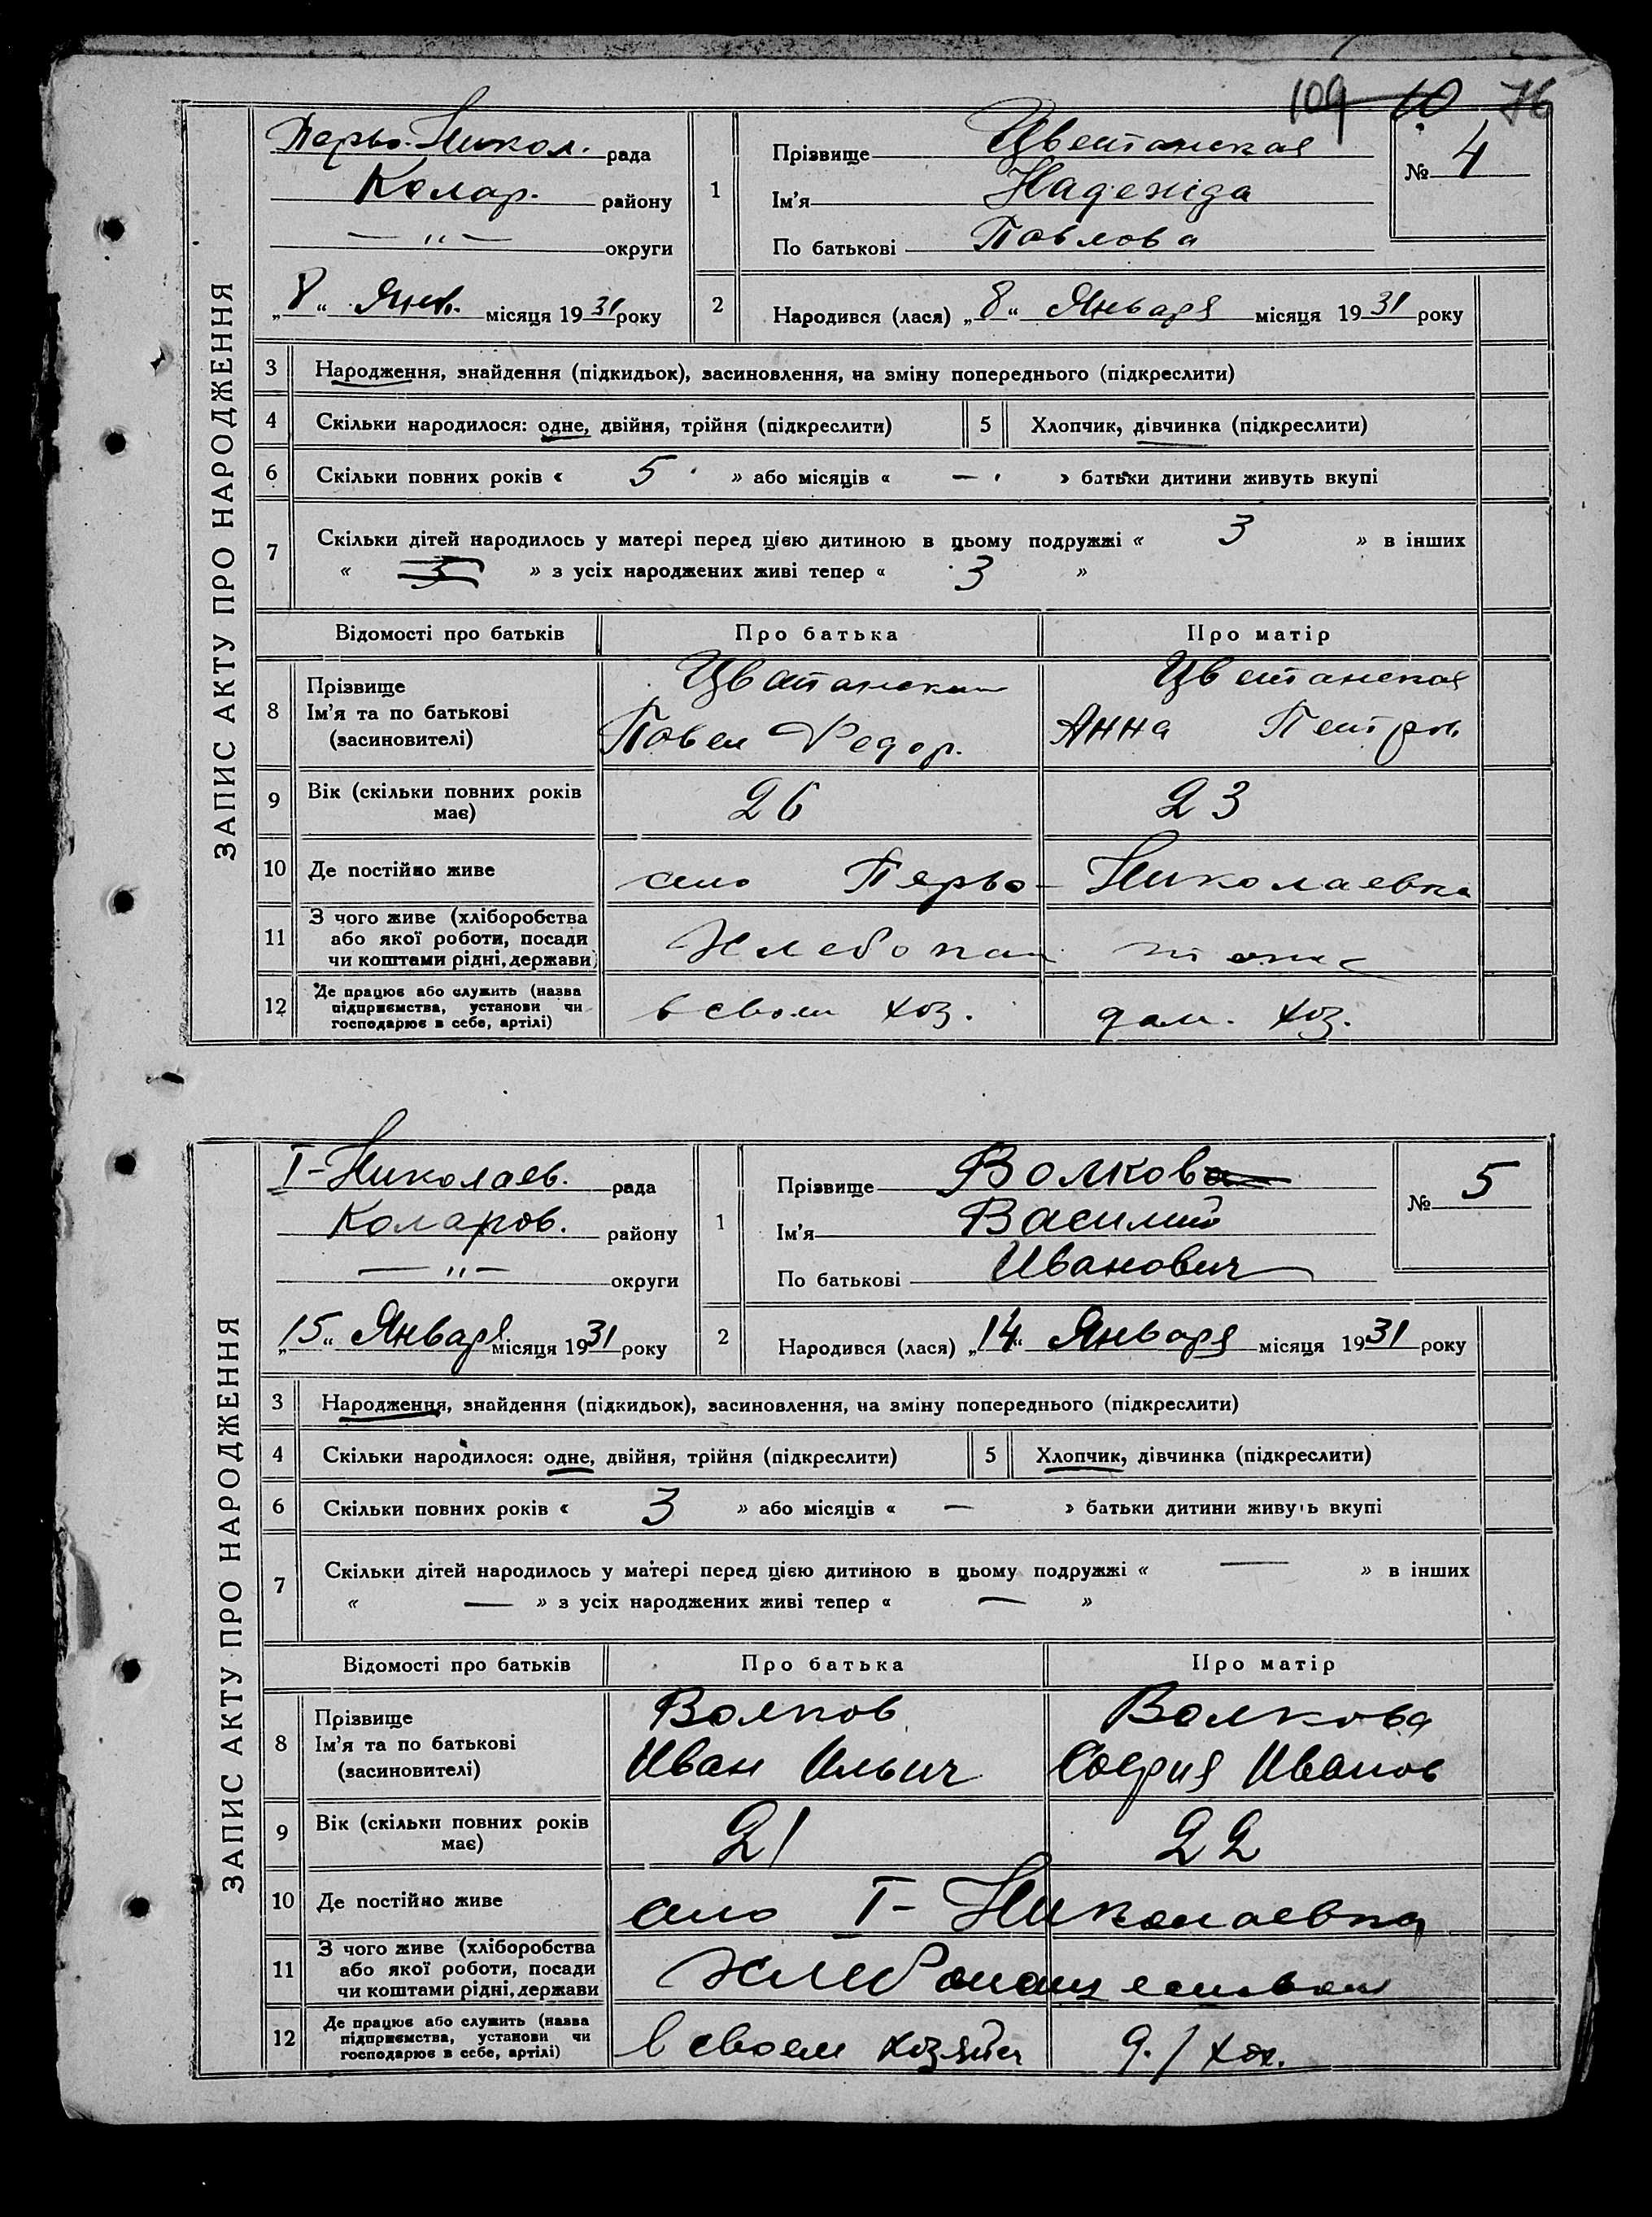 109 10 76
ЗАПИС АКТУ ПРО НАРОДЖЕННЯ
Перво-Никол. рада
Колар. району
— " — округи
„8“ Янв. місяця 1931 року
1 Прізвище Цветанская
Ім'я Надежда
По батькові Павлова
№ 4
2 Народився (лася) „8“ Января місяця 1931 року
3 Народження, знайдення (підкидьок), засиновлення, на зміну попереднього (підкреслити)
4 Скільки народилося: одне, двійня, трійня (підкреслити) 5 Хлопчик, дівчинка (підкреслити)
6 Скільки повних років « 5 » або місяців « — » батьки дитини живуть вкупі
7 Скільки дітей народилось у матері перед цією дитиною в цьому подружжі « 3 » в інших
« 3 » з усіх народжених живі тепер « 3 »
Відомості про батьків Про батька Про матір
8 Прізвище Цветанский Цветанская
Ім'я та по батькові Павел Федор. Анна Петров
(засновителі)
9 Вік (скільки повних років має) 26 23
10 Де постійно живе село Перво-Николаевка
11 З чого живе (хліборобства
або якої роботи, посади
чи коштами рідні, держави) Хлебопаш тоже
12 Де працює або служить (назва
підприємства, установи чи
господарює в себе, артілі) в своем хоз. дом. хоз.
ЗАПИС АКТУ ПРО НАРОДЖЕННЯ
I-Николаев. рада
Коларов. району
— " — округи
„15“ Января місяця 1931 року
1 Прізвище Волкова
Ім'я Василий
По батькові Иванович
№ 5
2 Народився (лася) „14“ Января місяця 1931 року
3 Народження, знайдення (підкидьок), засиновлення, на зміну попереднього (підкреслити)
4 Скільки народилося: одне, двійня, трійня (підкреслити) 5 Хлопчик, дівчинка (підкреслити)
6 Скільки повних років « 3 » або місяців « — » батьки дитини живуть вкупі
7 Скільки дітей народилось у матері перед цією дитиною в цьому подружжі « — » в інших
« — » з усіх народжених живі тепер « — »
Відомості про батьків Про батька Про матір
8 Прізвище Волков Волкова
Ім'я та по батькові Иван Ильич София Иванов
(засиновителі)
9 Вік (скільки повних років має) 21 22
10 Де постійно живе село I-Николаевка
11 З чого живе (хліборобства
або якої роботи, посади
чи коштами рідні, держави Хлебопашеством
12 Де працює або служить (назва
підприємства, установи чи
господарює в себе, артілі) в своем хозяйс д./хоз.